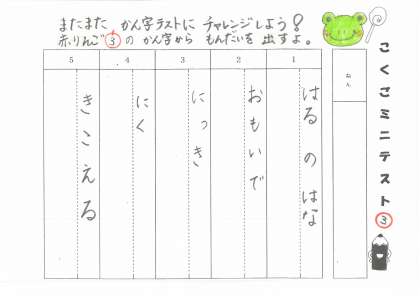 またまた かん字ラストに チャレンジしよう!
赤りんご③の かん字から もんだいを 出すよ。
こくごミニテスト③
ねん
1
はるのはな
2
おもいで
3
にっき
4
にく
5
きこえる